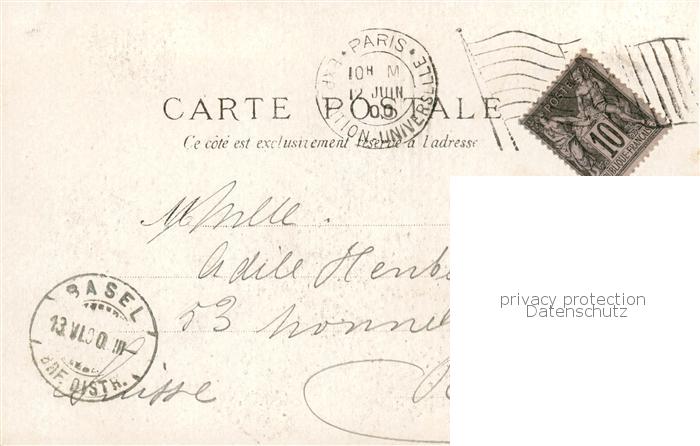 PARIS
EXPOSITION UNIVERSELLE
10H M
12 JUIN
00
POSTES
10
REPUBLIQUE FRANCAISE
CARTE POSTALE
Ce côté est exclusivement réservé à l'adresse
Mlle
53
privacy protection
Datenschutz
BASEL
13.VI.00. III
BRF. DISTR.
Suisse